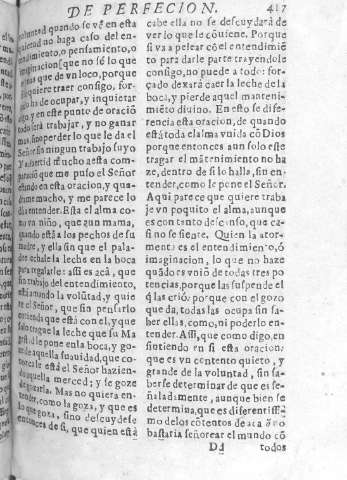 DE PERFECION.
417
voluntad quando se vé en esta
quietud no haga caso del en-
tendimiento, o pensamiento, o
imaginacion, que no sé lo que
mas que de vn loco, porque
quiere traer consigo, for-
ha de ocupar, y inquietar
algo y en este punto de oració
todo será trabajar, y no ganar
mas, sino perder lo que le da el
Señor sin ningun trabajo suyo
Y aduertid mucho a esta com-
paració que me puso el Señor
estando en esta oració, y qua-
drame mucho, y me parece lo
dà entender. Està el alma co-
mo vn niño, que aun mama,
quando està a los pechos de su
madre, y ella sin que el pala-
dee echale la leche en la boca
para regalarle: assi es acà, que
sin trabajo del entendimiento,
està amando la volütad, y quie
re el Señor, que sin pensarlo
entienda que està con el, y que
solo trague la leche que su Ma
gestad le pone en la boca, y go-
ze de aquella suauidad, que co-
nozca le està el Señor hazien-
do aquella merced; y se goze
de gozarla. Mas no quiera en-
tender, como la goza, y que es
lo que goza, sino descuydese
entonces de si, que quien està
cabe ella no se descuydarà de
ver lo que le cóuiene. Porque
si va a pelear có el entendimié
to para darle parte trayendole
consigo, no puede a todo: for-
çado dexarà caer la leche de la
boca, y pierde aquel manteni-
miéto diuino. En esto se dife-
rencia esta oracion, de quando
està toda el alma vnida có Dios
porque entonces aun solo este
tragar el mātenimiento no ha
ze, dentro de si lo halla, sin en-
tender, como le pone el Señor.
Aqui parece que quiere traba
je vn poquito el alma, aunque
es con tanto descanso, que ca-
si no se siente. Quien la ator-
menta es el entendimiento, ó
imaginacion, lo que no haze
quādo es vnió de todas tres po
tencias, porque las suspende el
q̃ las crió: porque con el gozo
que da, todas las ocupa sin sa-
ber ellas, como, ni poderlo en-
tender. Assi, que como digo, en
sintiendo en si esta oracion,
que es vn contento quieto, y
grande de la voluntad, sin sa-
berse determinar de que es se-
ñaladamente, aunque bien se
determina, que es diferentissi-
mo de los cótentos de acà q̃ no
bastaria señorear el mundo có
Dd
todos